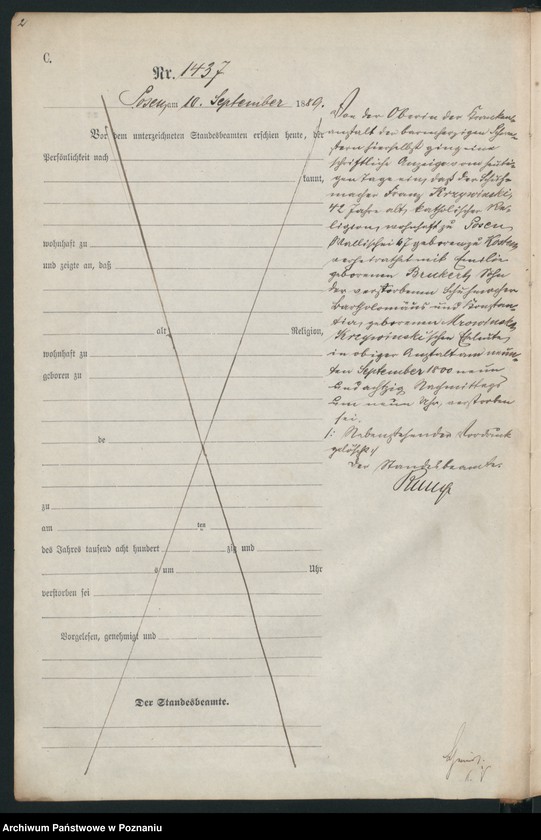 2
C.
Nr. 1437
Posen, am 10. September 1889.
Vor dem unterzeichneten Standesbeamten erschien heute, der
Persönlichkeit nach
kannt,
wohnhaft zu
und zeigte an, daß
alt, Religion,
wohnhaft zu
geboren zu
de
zu
am ten
des Jahres tausend acht hundert zig und
s um Uhr
verstorben sei
Vorgelesen, genehmigt und
Der Standesbeamte.
Von der Oberin der Kranken-
anstalt der barmherzigen Schwe-
stern hierselbst ging eine
schriftliche Anzeige vom heuti-
gen Tage ein, daß der Schuh-
macher Franz Krzywinski,
42 Jahre alt, katholischer Re-
ligion, wohnhaft zu Posen,
Wallischei 67, geboren zu
verheirathet mit Emilie
geborenen Sohn
der verstorbenen Schuhmacher
Bartholomäus und Konstan-
tia, geborener Mrowinska
Krzywinski'schen Eheleute,
in obiger Anstalt am neun-
ten September 1800 neun
und achtzig Nachmittags
um neun Uhr, verstorben
sei.
/: Nebenstehender Vordruck
gelöscht :/
Der Standesbeamte.
Archiwum Państwowe w Poznaniu